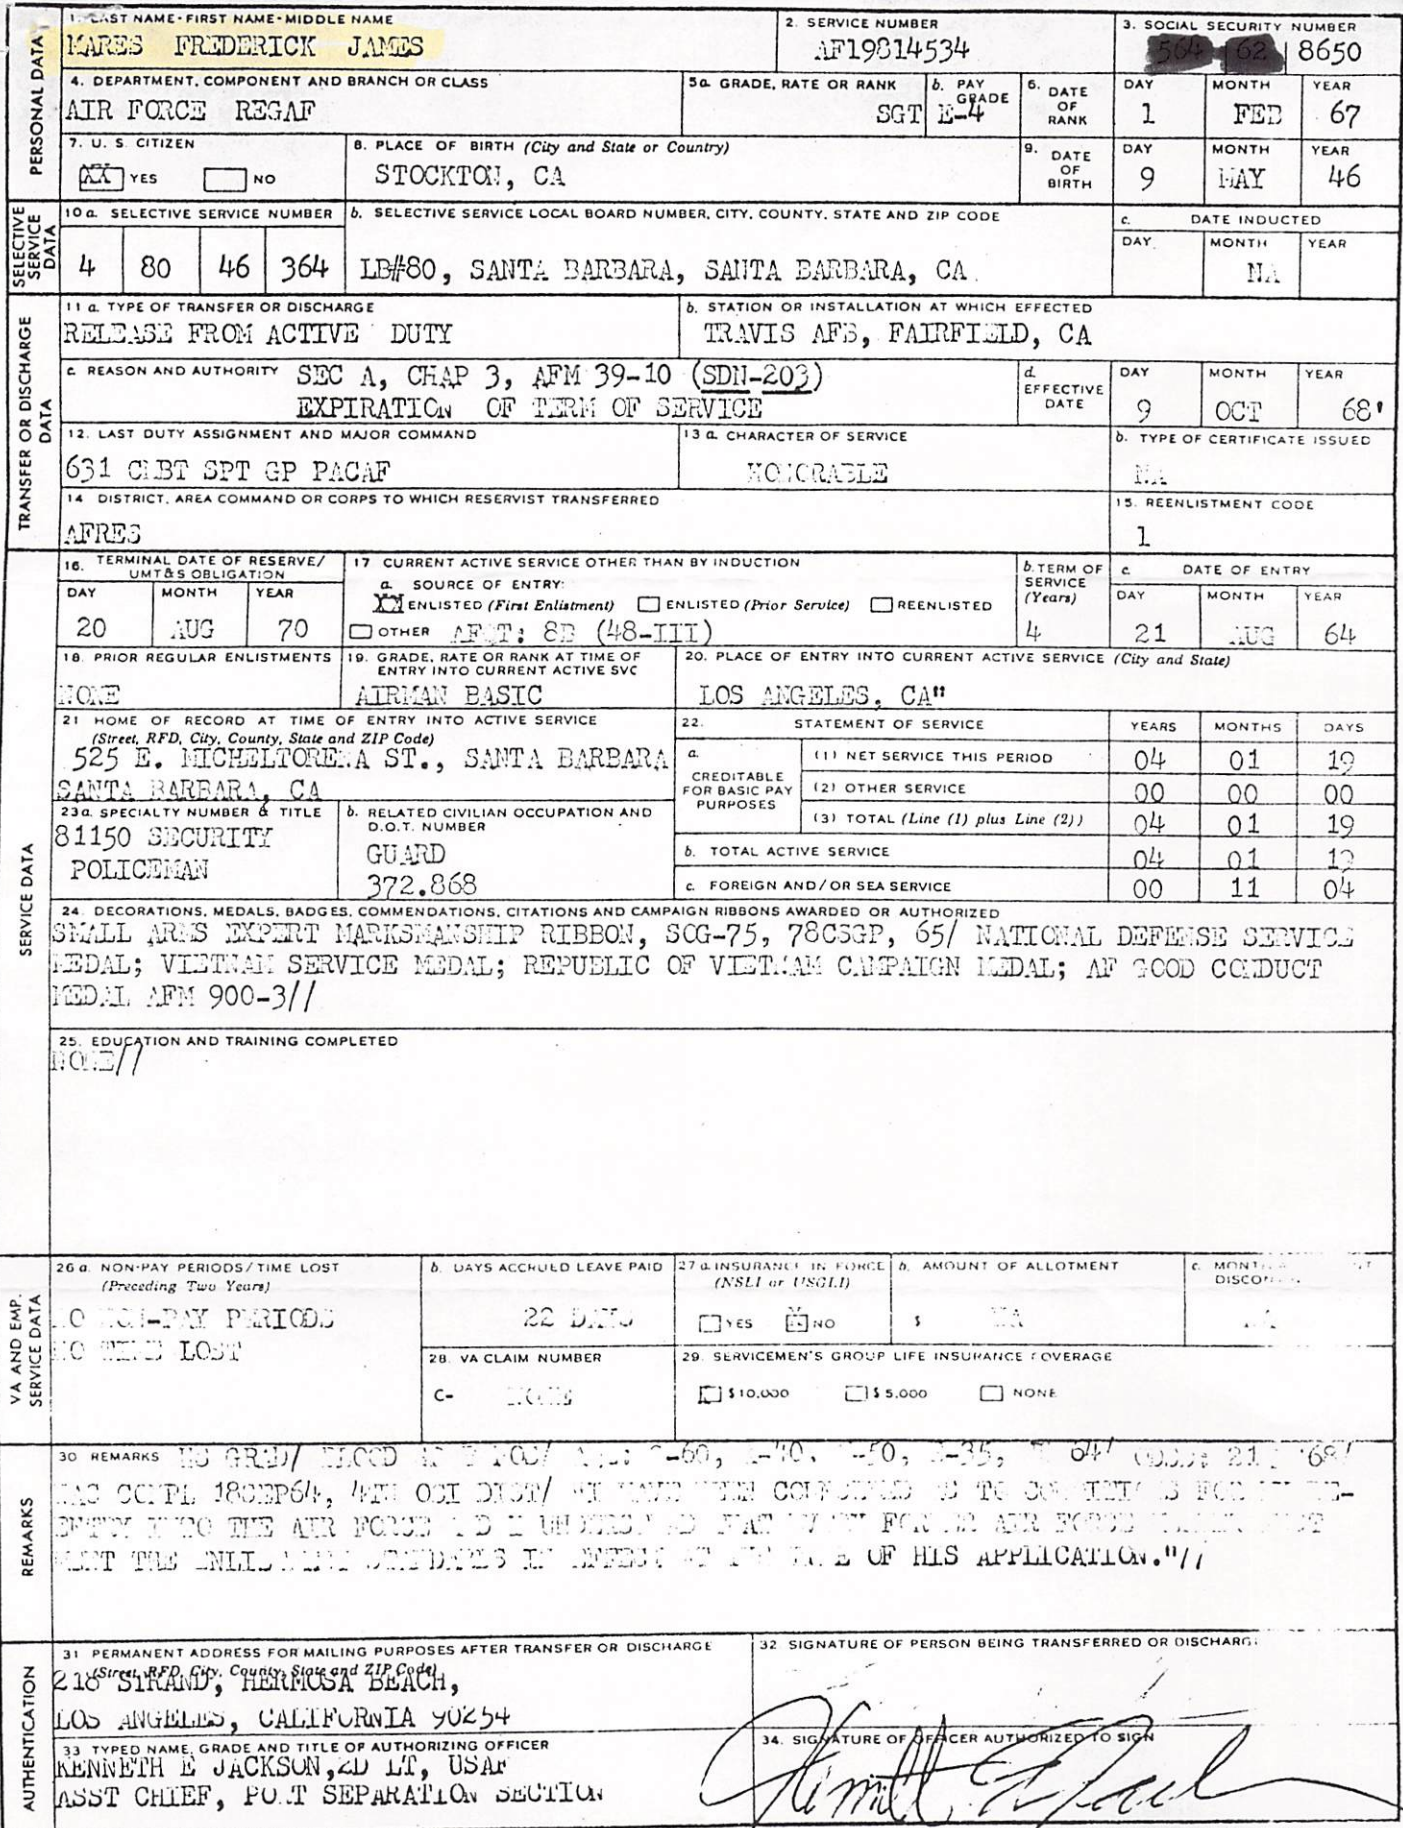 PERSONAL DATA
1. LAST NAME-FIRST NAME-MIDDLE NAME
MARES FREDERICK JAMES
2. SERVICE NUMBER
AF19814534
3. SOCIAL SECURITY NUMBER
8650
4. DEPARTMENT, COMPONENT AND BRANCH OR CLASS
AIR FORCE REGAF
5a. GRADE, RATE OR RANK
SGT
b. PAY GRADE
E-4
6. DATE OF RANK
DAY MONTH YEAR
1 FEB 67
7. U. S. CITIZEN
XX YES NO
8. PLACE OF BIRTH (City and State or Country)
STOCKTON, CA
9. DATE OF BIRTH
DAY MONTH YEAR
9 MAY 46
SELECTIVE SERVICE DATA
10 a. SELECTIVE SERVICE NUMBER
4 80 46 364
b. SELECTIVE SERVICE LOCAL BOARD NUMBER, CITY, COUNTY, STATE AND ZIP CODE
LB#80, SANTA BARBARA, SANTA BARBARA, CA
c. DATE INDUCTED
DAY MONTH YEAR
NA
TRANSFER OR DISCHARGE DATA
11 a. TYPE OF TRANSFER OR DISCHARGE
RELEASE FROM ACTIVE DUTY
b. STATION OR INSTALLATION AT WHICH EFFECTED
TRAVIS AFB, FAIRFIELD, CA
c. REASON AND AUTHORITY SEC A, CHAP 3, AFM 39-10 (SDN-203)
EXPIRATION OF TERM OF SERVICE
d. EFFECTIVE DATE
DAY MONTH YEAR
9 OCT 68'
12. LAST DUTY ASSIGNMENT AND MAJOR COMMAND
631 CMBT SPT GP PACAF
13 a. CHARACTER OF SERVICE
HONORABLE
b. TYPE OF CERTIFICATE ISSUED
NA
14. DISTRICT, AREA COMMAND OR CORPS TO WHICH RESERVIST TRANSFERRED
AFRES
15. REENLISTMENT CODE
1
SERVICE DATA
16. TERMINAL DATE OF RESERVE/ UMT&S OBLIGATION
DAY MONTH YEAR
20 AUG 70
17 CURRENT ACTIVE SERVICE OTHER THAN BY INDUCTION
a. SOURCE OF ENTRY:
ENLISTED (First Enlistment) ENLISTED (Prior Service) REENLISTED
OTHER AFQT: 8B (48-III)
b. TERM OF SERVICE (Years)
4
c. DATE OF ENTRY
DAY MONTH YEAR
21 AUG 64
18. PRIOR REGULAR ENLISTMENTS
NONE
19. GRADE, RATE OR RANK AT TIME OF ENTRY INTO CURRENT ACTIVE SVC
AIRMAN BASIC
20. PLACE OF ENTRY INTO CURRENT ACTIVE SERVICE (City and State)
LOS ANGELES, CA"
21 HOME OF RECORD AT TIME OF ENTRY INTO ACTIVE SERVICE
(Street, RFD, City, County, State and ZIP Code)
525 E. MICHELTORENA ST., SANTA BARBARA
SANTA BARBARA, CA
22. STATEMENT OF SERVICE YEARS MONTHS DAYS
a. CREDITABLE FOR BASIC PAY PURPOSES
(1) NET SERVICE THIS PERIOD 04 01 19
(2) OTHER SERVICE 00 00 00
(3) TOTAL (Line (1) plus Line (2)) 04 01 19
b. TOTAL ACTIVE SERVICE 04 01 19
c. FOREIGN AND/OR SEA SERVICE 00 11 04
23a. SPECIALTY NUMBER & TITLE
81150 SECURITY
POLICEMAN
b. RELATED CIVILIAN OCCUPATION AND D.O.T. NUMBER
GUARD
372.868
24. DECORATIONS, MEDALS, BADGES, COMMENDATIONS, CITATIONS AND CAMPAIGN RIBBONS AWARDED OR AUTHORIZED
SMALL ARMS EXPERT MARKSMANSHIP RIBBON, SOG-75, 78CSGP, 65/ NATIONAL DEFENSE SERVICE
MEDAL; VIETNAM SERVICE MEDAL; REPUBLIC OF VIETNAM CAMPAIGN MEDAL; AF GOOD CONDUCT
MEDAL AFM 900-3//
25. EDUCATION AND TRAINING COMPLETED
NONE//
VA AND EMP. SERVICE DATA
26 a. NON-PAY PERIODS/TIME LOST
(Preceding Two Years)
NO NON-PAY PERIODS
NO TIME LOST
b. DAYS ACCRUED LEAVE PAID
22 DAYS
27 a. INSURANCE IN FORCE
(NSLI or USGLI)
YES X NO
b. AMOUNT OF ALLOTMENT
$ NA
c.
28. VA CLAIM NUMBER
C- NONE
29. SERVICEMEN'S GROUP LIFE INSURANCE COVERAGE
$10,000 $5,000 NONE
REMARKS
30 REMARKS HS GRAD/ BLOOD 64/ 68/
COMPL 18SEP64, 4TH OSI DIST/ TO FOR
INTO THE AIR FORCE I AIR FORCE
THE IN OF HIS APPLICATION."//
AUTHENTICATION
31 PERMANENT ADDRESS FOR MAILING PURPOSES AFTER TRANSFER OR DISCHARGE
(Street, RFD, City, County, State and ZIP Code)
218 STRAND, HERMOSA BEACH,
LOS ANGELES, CALIFORNIA 90254
32 SIGNATURE OF PERSON BEING TRANSFERRED OR
33 TYPED NAME, GRADE AND TITLE OF AUTHORIZING OFFICER
KENNETH E JACKSON, 2D LT, USAF
ASST CHIEF, SEPARATION SECTION
34. SIGNATURE OF OFFICER AUTHORIZED TO SIGN